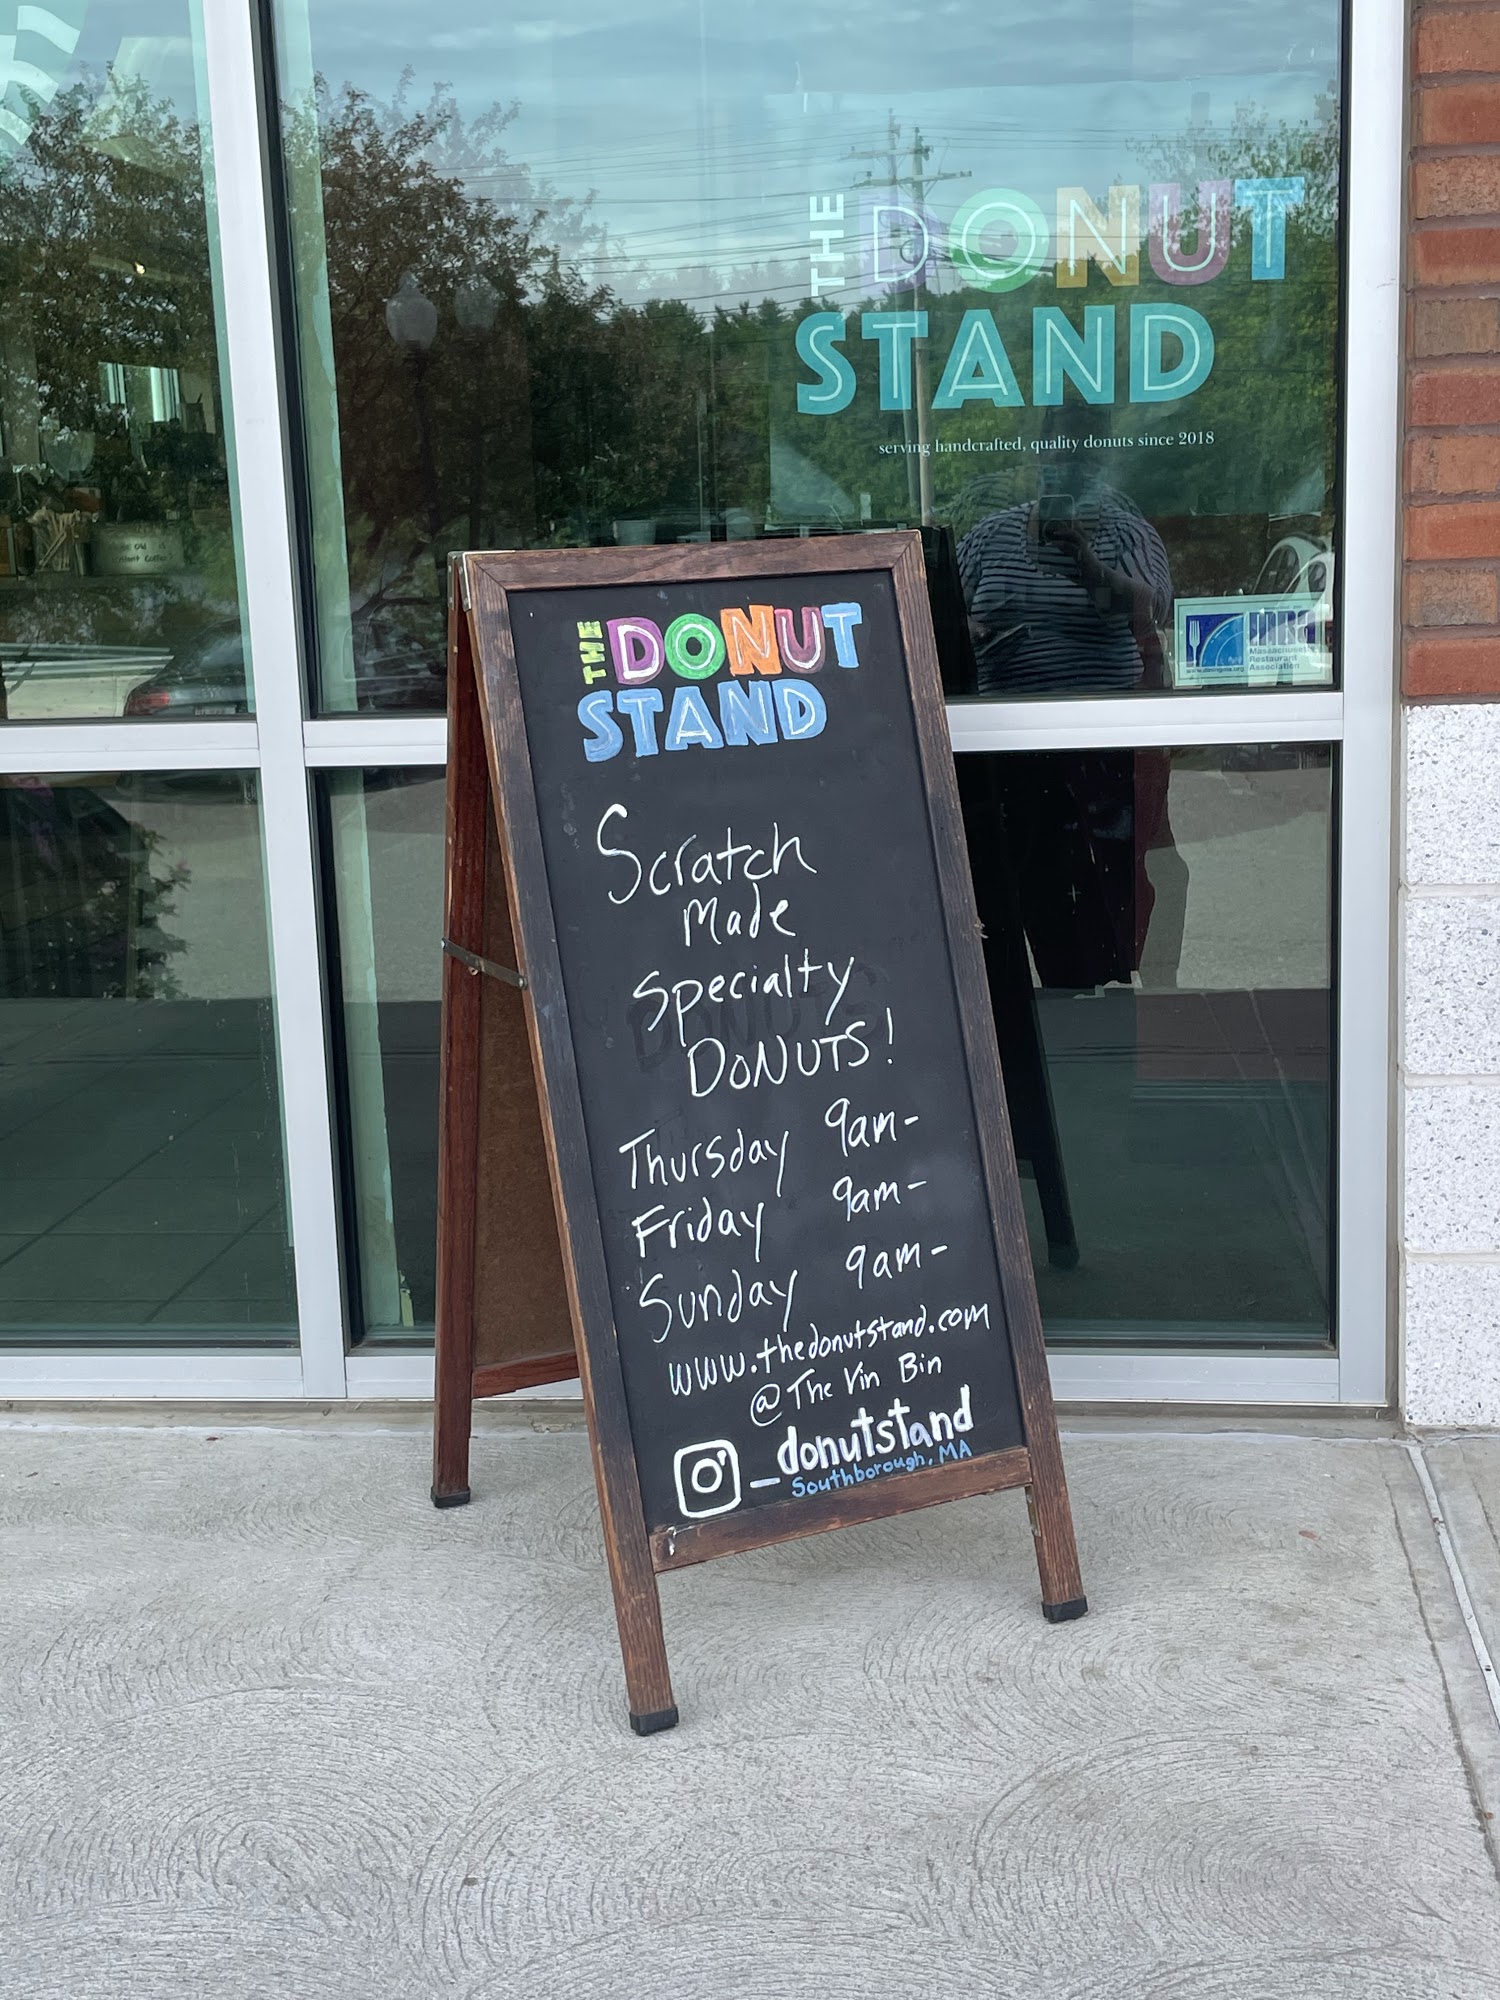 THE DONUT
STAND
serving handcrafted, quality donuts since 2018
Massachusetts
Restaurant
Association
THE DONUT
STAND
Scratch
Made
Specialty
DONUTS!
Thursday 9am-
Friday 9am-
Sunday 9am-
www.thedonutstand.com
@The Vin Bin
_donutstand
Southborough, MA